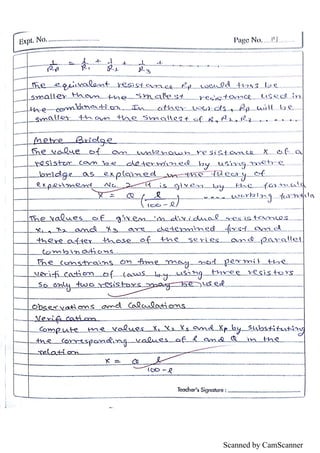 Expt. No.
Page No. 21
1/Rp = 1/R1 + 1/R2 + 1/R3 + ............
The equivalent resistance Rp would thus be
smaller than the smallest resistance used in
the combination. In other words, Rp will be
smaller than the smallest of R1, R2, R3 ......
Metre Bridge
The value of an unknown resistance X of a
resistor can be determined by using metre
bridge as explained in the theory of
experiment No. 2. It is given by the formula
X = Q ( l / 100 - l ) .... working formula
The values of given individual resistances
X1, X2 and X3 are determined first and
thereafter those of the series and parallel
combinations
The constrains on time may not permit the
verification of laws by using three resistors
So only two resistors may be used
Observations and Calculations
Verification
Compute the values X1 X2 Xs and Xp by substituting
the corresponding values of l and Q in the
relation
X = Q l / 100 - l
Teacher's Signature :
Scanned by CamScanner